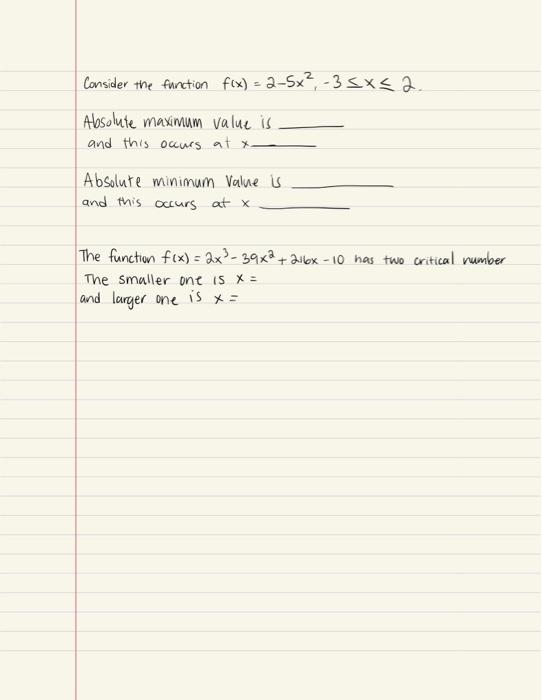 Consider the function f(x) = 2-5x², -3 ≤ x ≤ 2.
Absolute maximum value is ______
and this occurs at x ______
Absolute minimum value is ______
and this occurs at x ______
The function f(x) = 2x³ - 39x² + 216x - 10 has two critical number
The smaller one is x =
and larger one is x =